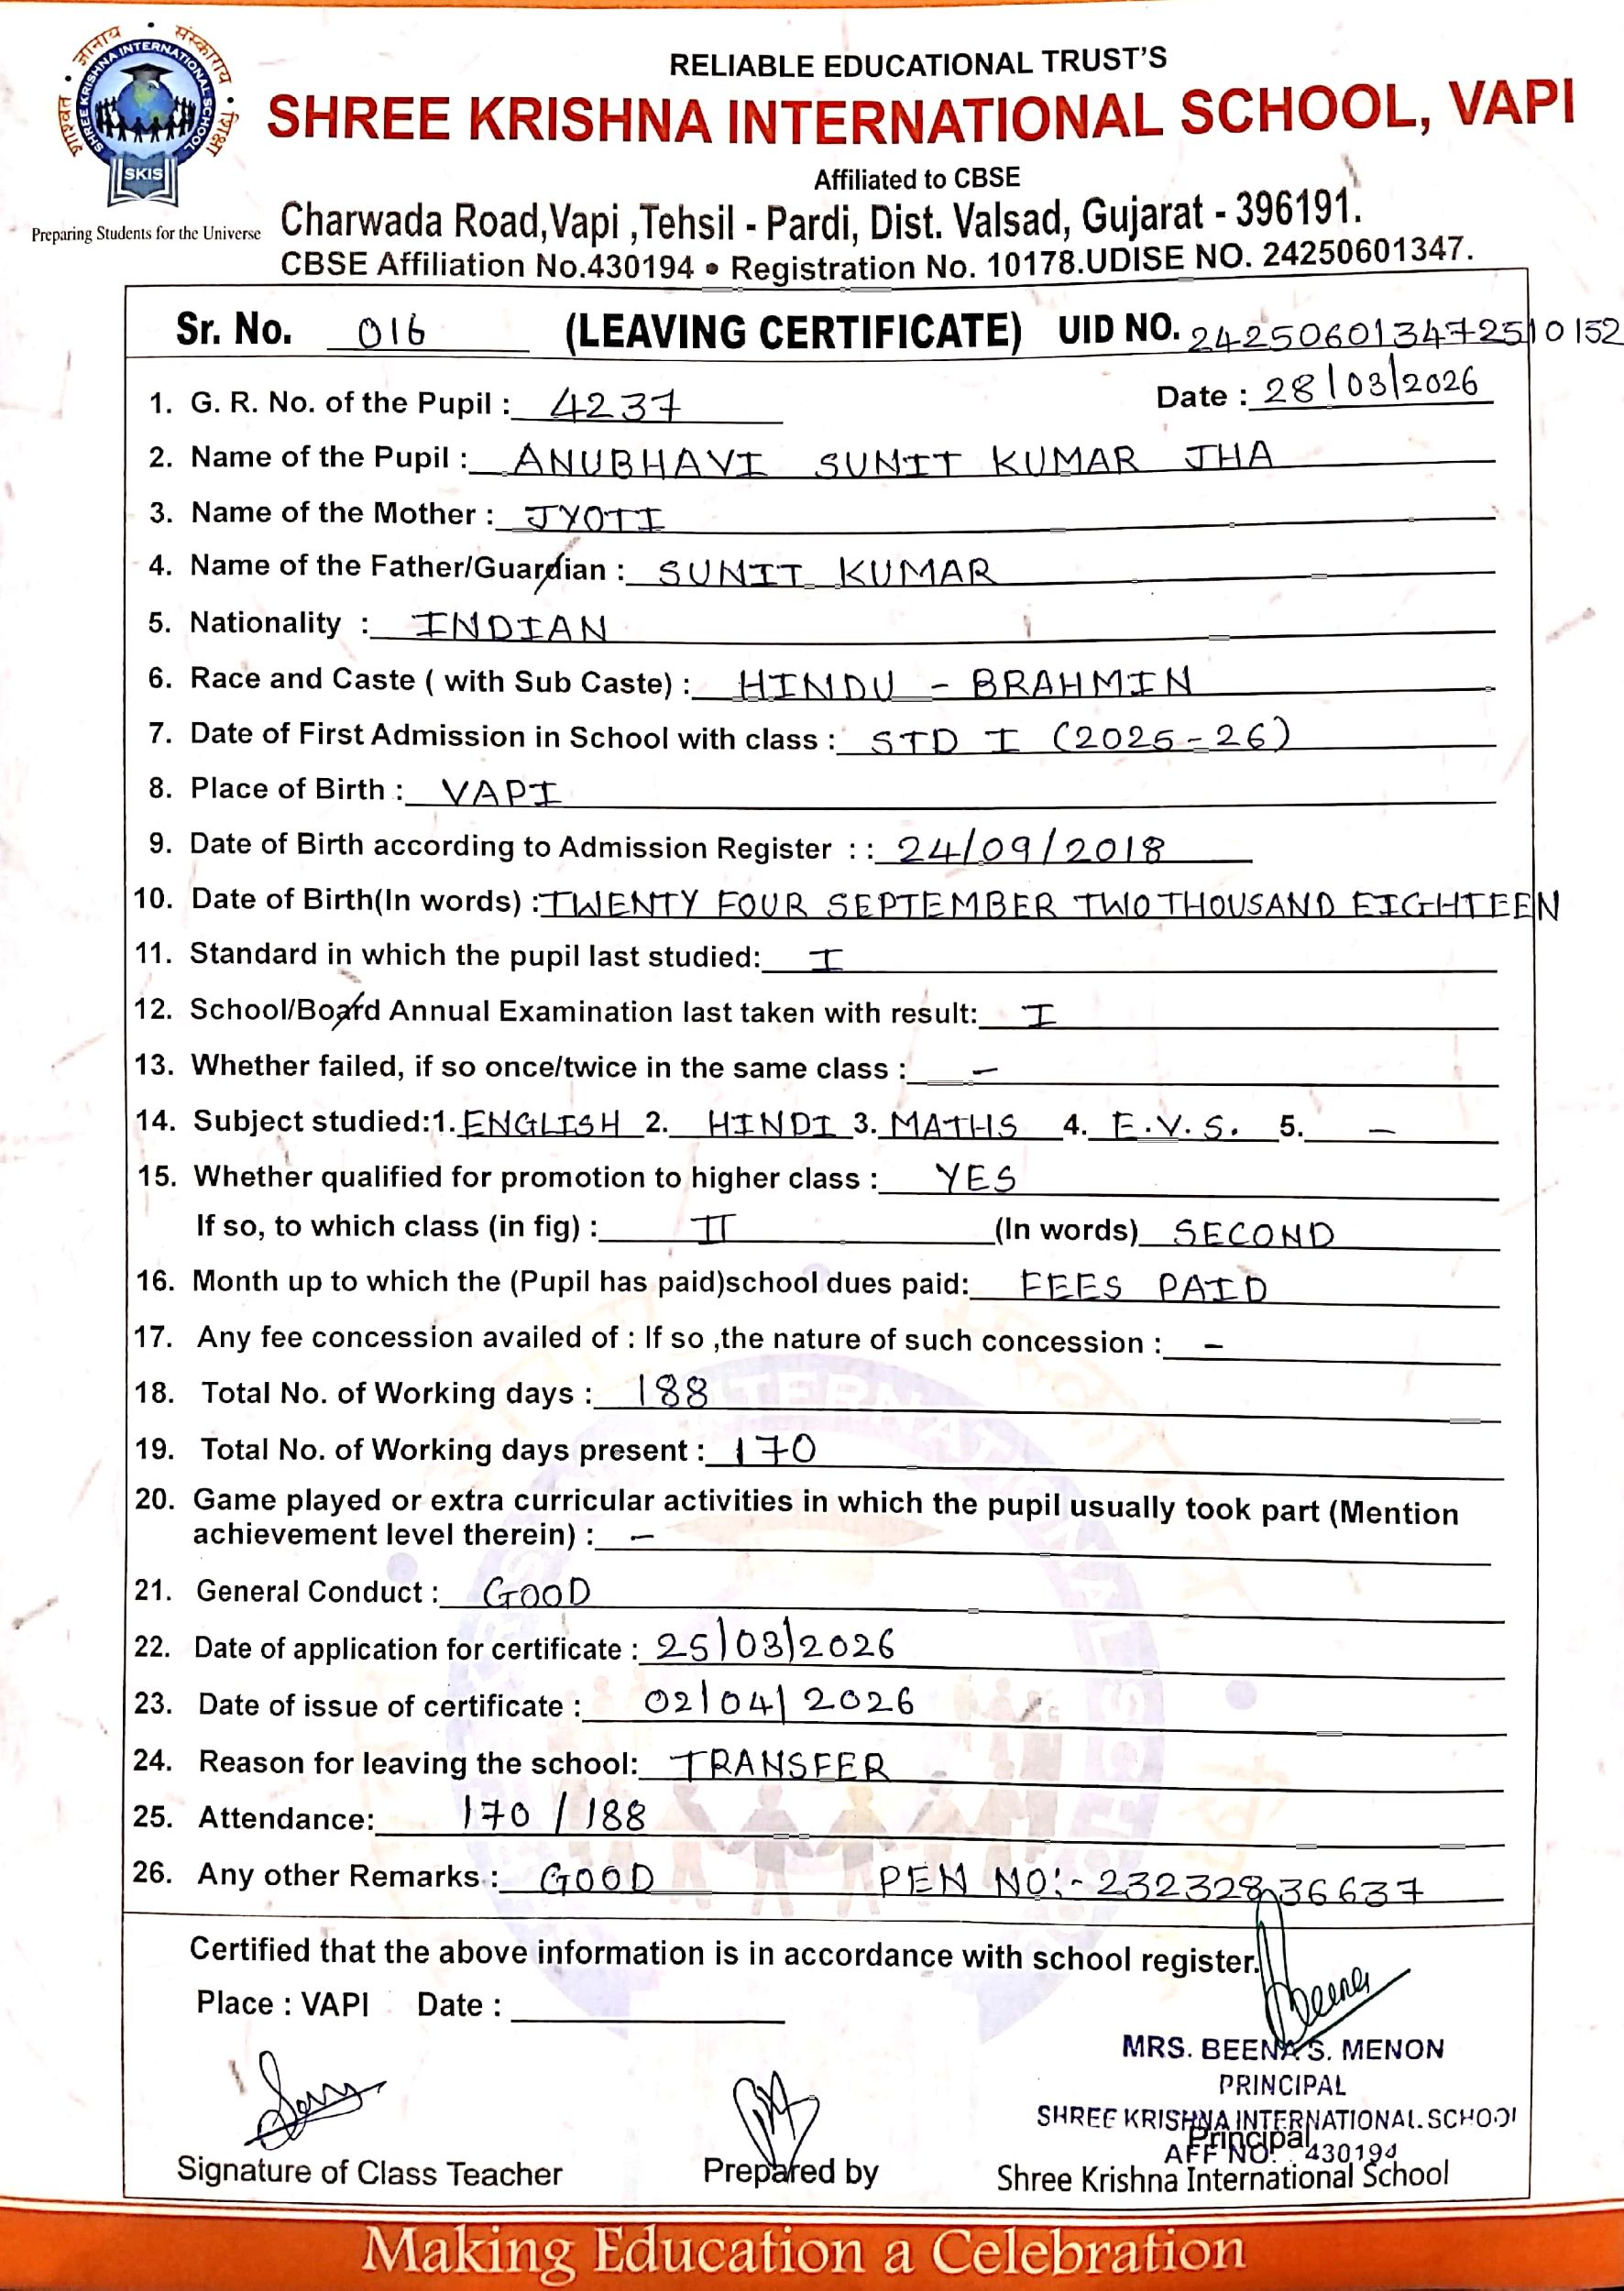 शाश्वत • ज्ञानाय • संस्काराय • शिक्षा
SHREE KRISHNA INTERNATIONAL SCHOOL
SKIS
Preparing Students for the Universe
RELIABLE EDUCATIONAL TRUST'S
SHREE KRISHNA INTERNATIONAL SCHOOL, VAPI
Affiliated to CBSE
Charwada Road,Vapi ,Tehsil - Pardi, Dist. Valsad, Gujarat - 396191.
CBSE Affiliation No.430194 • Registration No. 10178.UDISE NO. 24250601347.
Sr. No. 016 (LEAVING CERTIFICATE) UID NO. 242506013472510152
1. G. R. No. of the Pupil : 4237 Date : 28/03/2026
2. Name of the Pupil : ANUBHAVI SUNIT KUMAR JHA
3. Name of the Mother : JYOTI
4. Name of the Father/Guardian : SUNIT KUMAR
5. Nationality : INDIAN
6. Race and Caste ( with Sub Caste) : HINDU - BRAHMIN
7. Date of First Admission in School with class : STD I (2025-26)
8. Place of Birth : VAPI
9. Date of Birth according to Admission Register : : 24/09/2018
10. Date of Birth(In words) : TWENTY FOUR SEPTEMBER TWO THOUSAND EIGHTEEN
11. Standard in which the pupil last studied: I
12. School/Board Annual Examination last taken with result: I
13. Whether failed, if so once/twice in the same class : -
14. Subject studied:1. ENGLISH 2. HINDI 3. MATHS 4. E.V.S. 5. -
15. Whether qualified for promotion to higher class : YES
If so, to which class (in fig) : II (In words) SECOND
16. Month up to which the (Pupil has paid)school dues paid: FEES PAID
17. Any fee concession availed of : If so ,the nature of such concession : -
18. Total No. of Working days : 188
19. Total No. of Working days present : 170
20. Game played or extra curricular activities in which the pupil usually took part (Mention
achievement level therein) : -
21. General Conduct : GOOD
22. Date of application for certificate : 25/03/2026
23. Date of issue of certificate : 02/04/2026
24. Reason for leaving the school: TRANSFER
25. Attendance: 170 / 188
26. Any other Remarks : GOOD PEN NO:- 23232836637
Certified that the above information is in accordance with school register.
Place : VAPI Date :
MRS. BEENA S. MENON
PRINCIPAL
SHREE KRISHNA INTERNATIONAL SCHOOL
AFF NO. 430194
Principal
Signature of Class Teacher Prepared by Shree Krishna International School
Making Education a Celebration